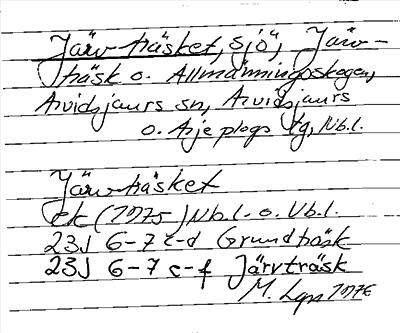 Järvträsket, sjö, Järv-
träsk o. Allmänningsskogen,
Arvidsjaurs sn, Arvidsjaurs
o. Arjeplogs tg, Nb.l.
Järvträsket
ek (1975) Nb.l. o. Vb.l.
23J 6-7 c-d Grundträsk
23J 6-7 c-f Järvträsk
M. Lgn 1976